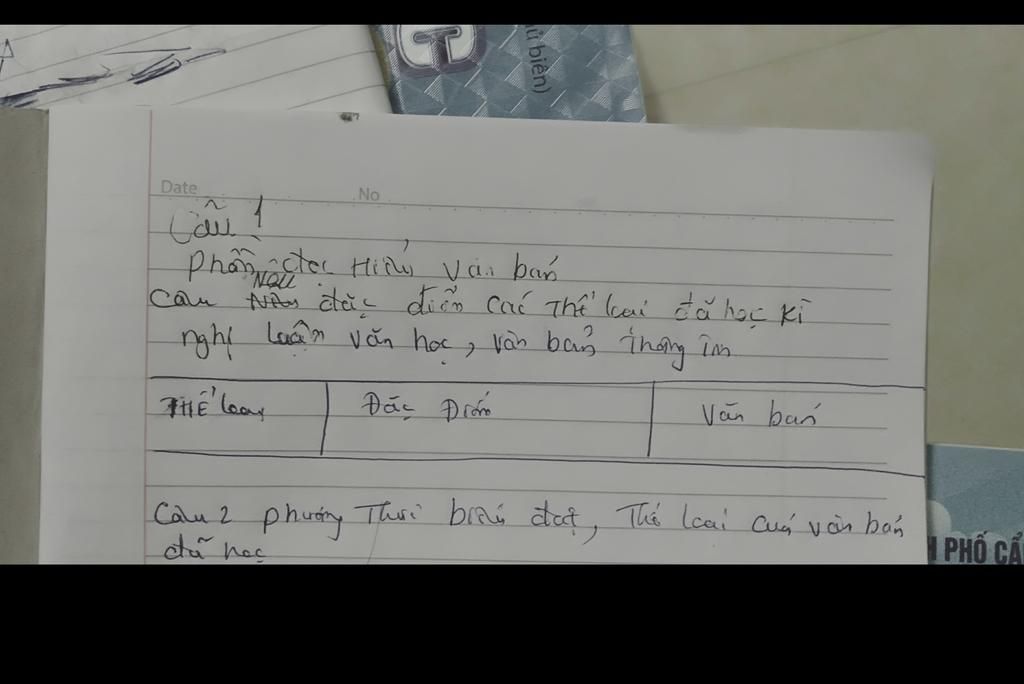 ủ biên)
Date No
Câu 1
Phần đọc Hiểu Văn bản
Câu Nêu đặc điểm các Thể loại đã học kì
nghị luận văn học, văn bản thông tin
THỂ loại Đặc Điểm Văn bản
Câu 2 phương Thức biểu đạt, Thể loại của văn bản
đã học
PHỐ CẨ